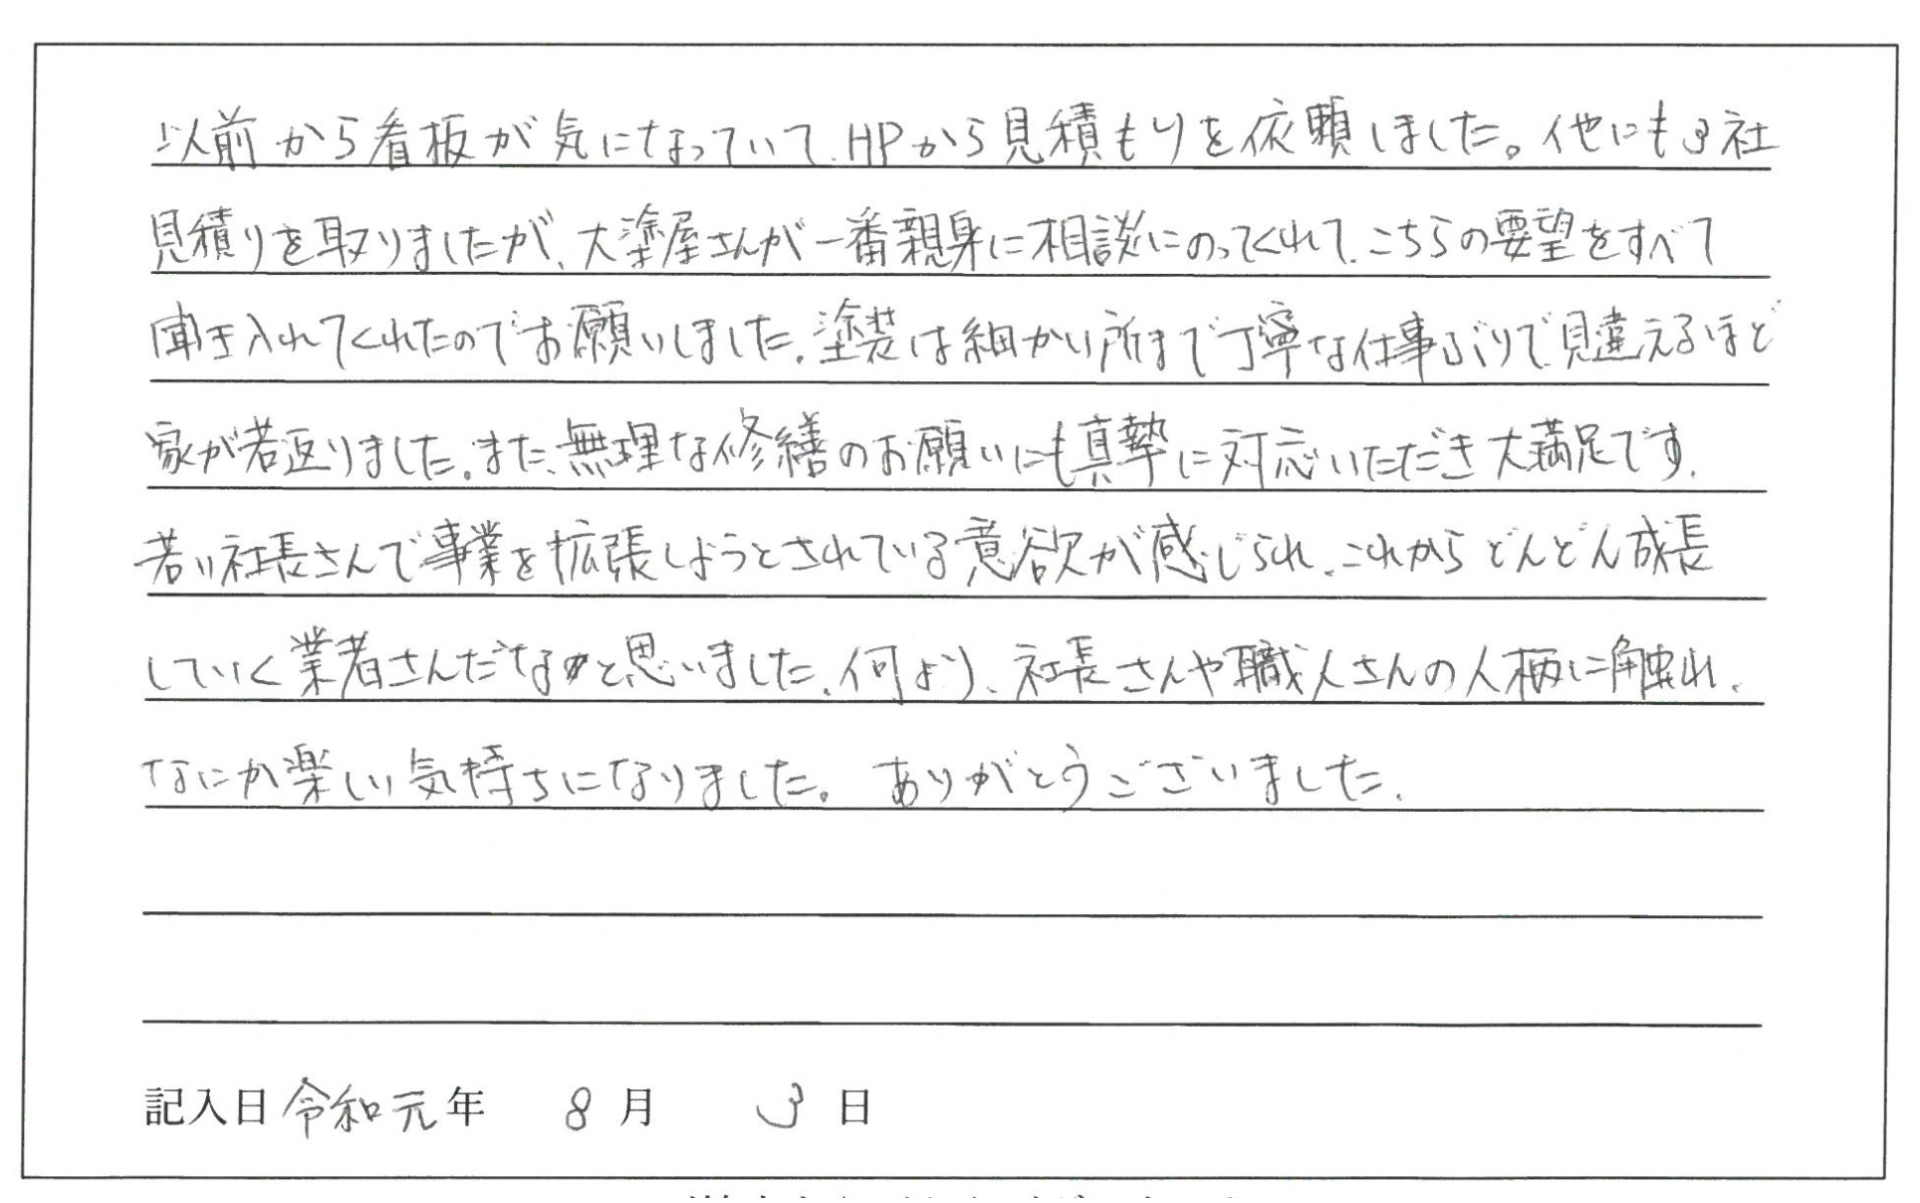 以前から看板が気になっていて、HPから見積もりを依頼しました。他にも3社
見積りを取りましたが、大塗屋さんが一番親身に相談にのってくれて、こちらの要望をすべて
聞き入れてくれたのでお願いしました。塗装は細かい所まで丁寧な仕事ぶりで見違えるほど
家が若返りました。また、無理な修繕のお願いにも真摯に対応いただき大満足です。
若い社長さんで事業を拡張しようとされている意欲が感じられ、これからどんどん成長
していく業者さんだなと思いました。何より、社長さんや職人さんの人柄に触れ、
なにか楽しい気持ちになりました。ありがとうございました。
記入日 令和元年 8月 3日